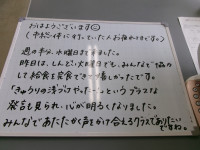 おはようございます☺
(市総体に行っていた人お疲れさまです。)
週の半分、水曜日まで来ました。
昨日は、しんどい火曜日でも、みんなで協力
して給食を完食できて嬉しかったです。
「きゅうりの浅づけやったー」というプラスな
発言も見られ、心が明るくなりました。
みんなであたたかく声をかけ合えるクラスでありたい
ですね。